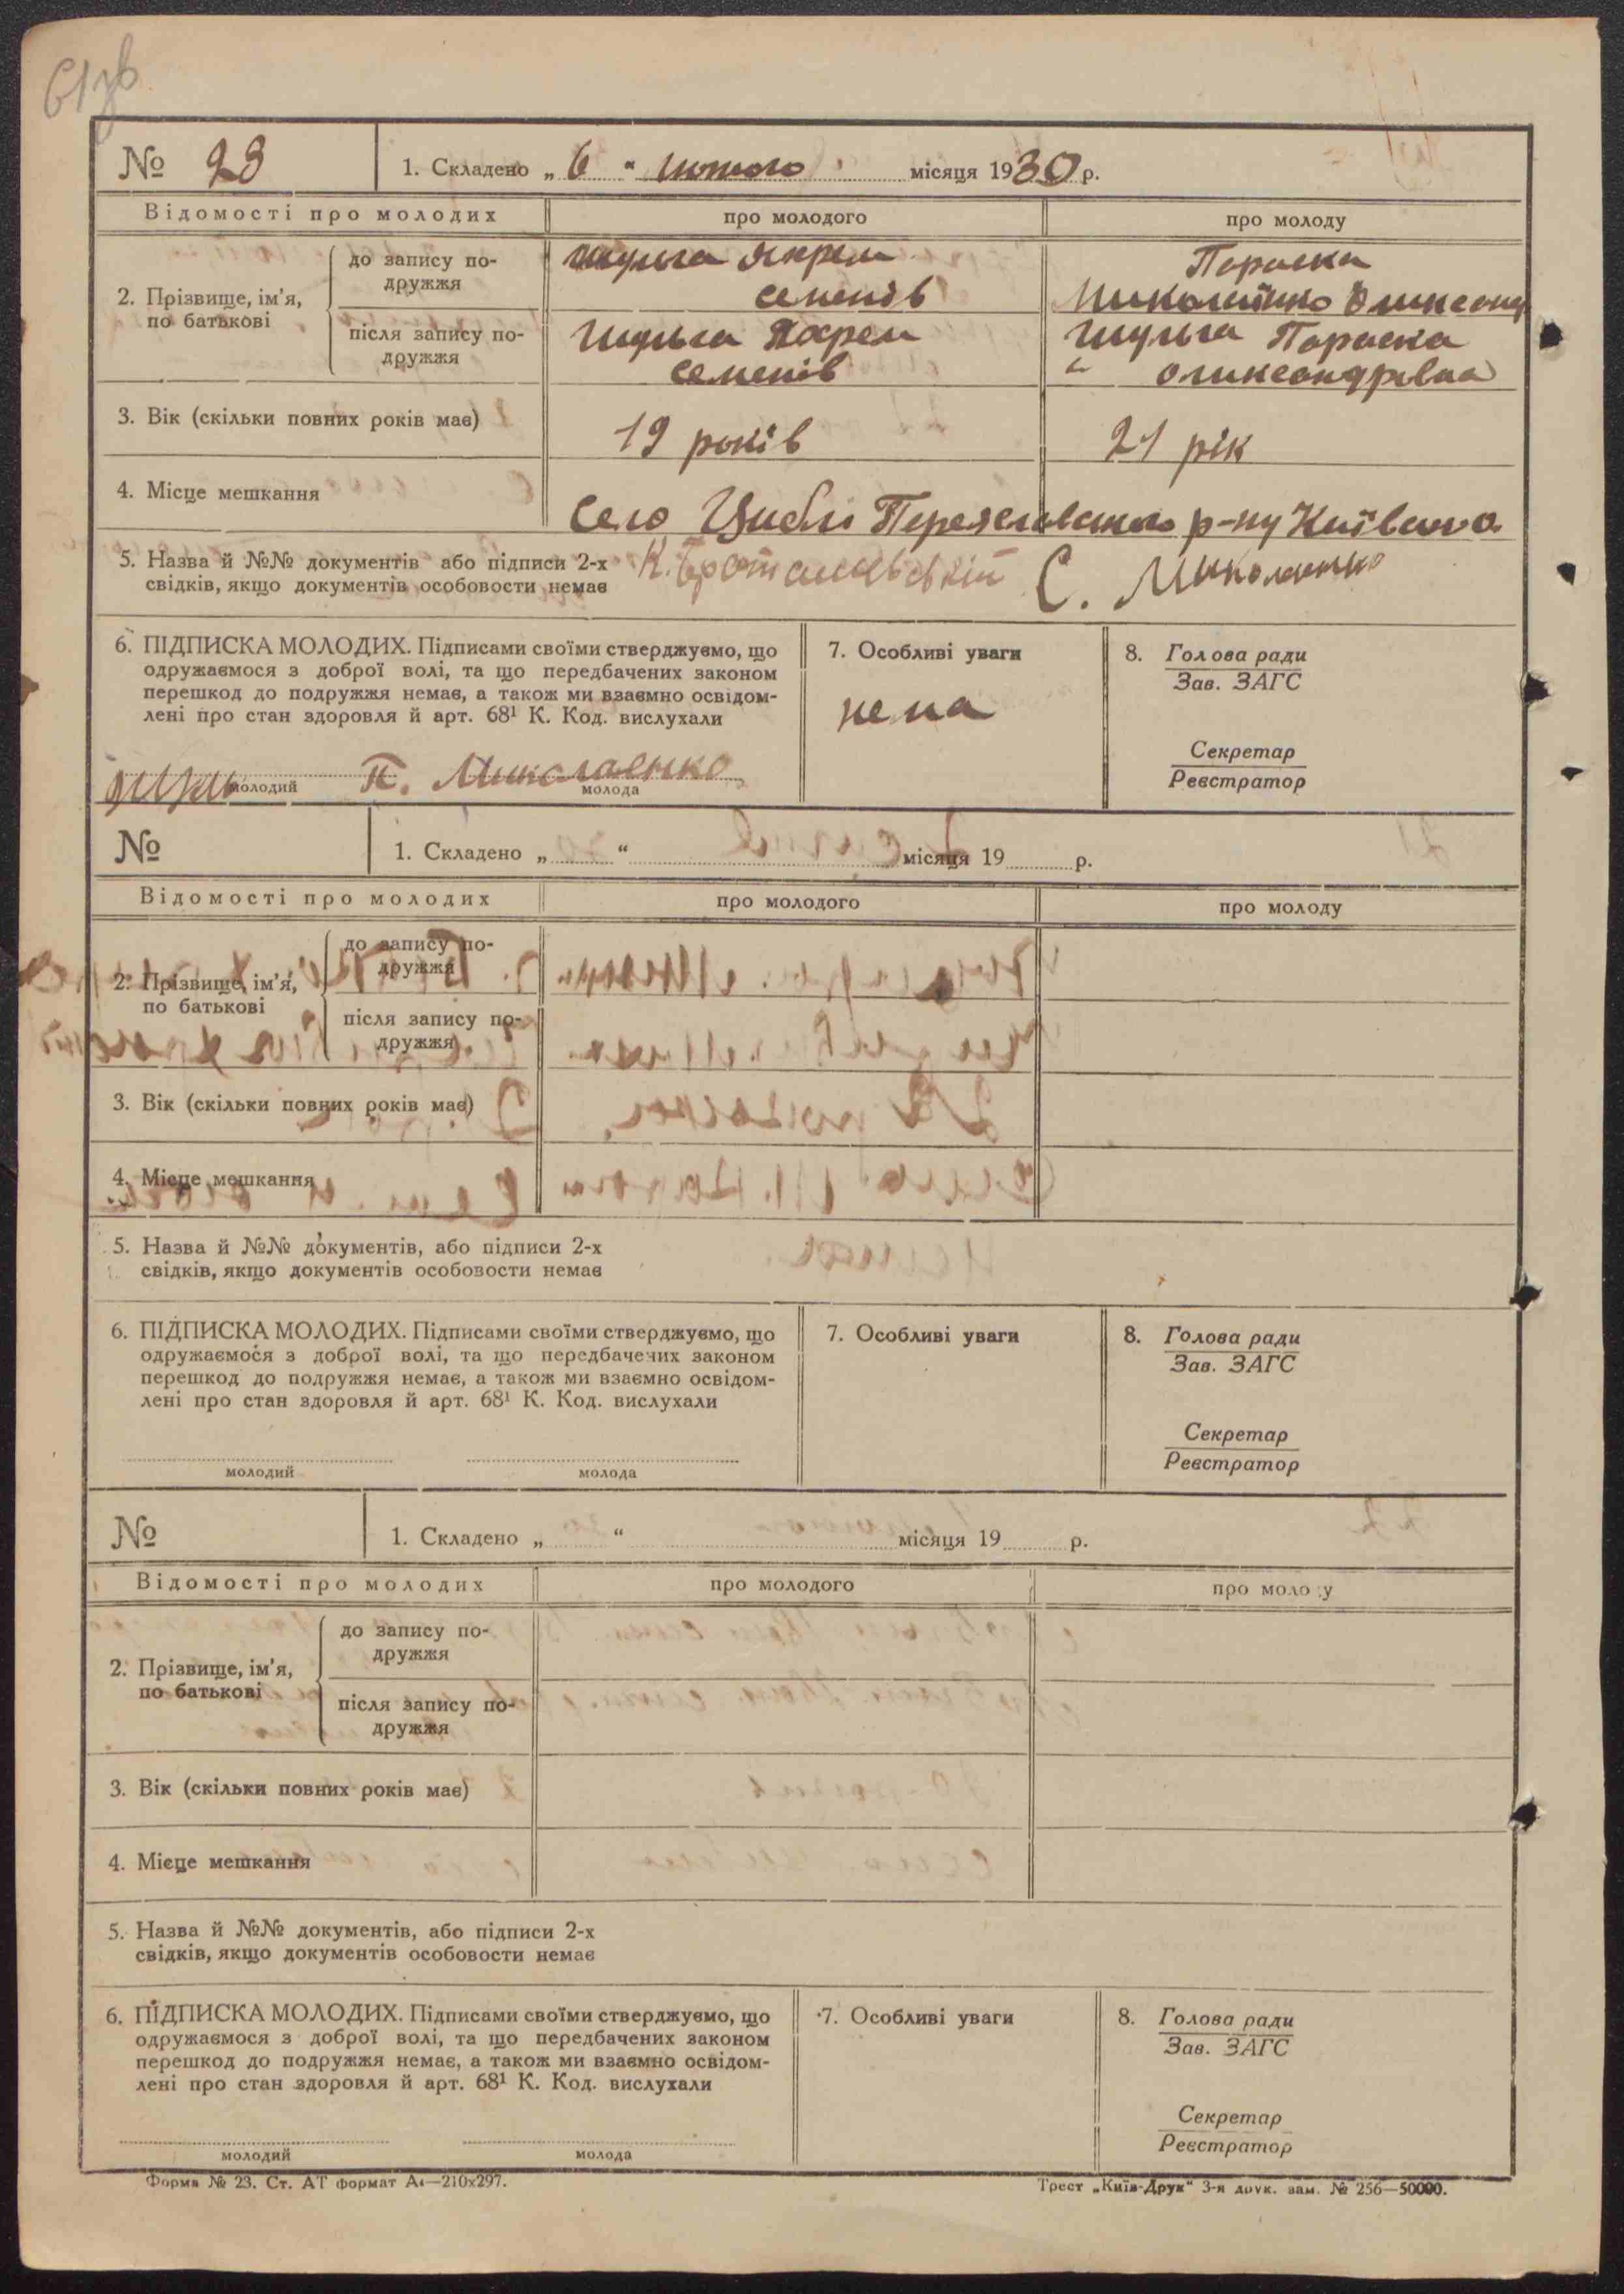 61зв
№ 23
1. Складено „ 6 “ лютого місяця 1930 р.
Відомості про молодих
про молодого
про молоду
2. Прізвище, ім’я, по батькові
до запису подружжя
Шульга Яхрем
семенів
Параска
після запису подружжя
Шульга Яхрем
семенів
Шульга Параска
олександрівна
3. Вік (скільки повних років має)
19 років
21 рік
4. Місце мешкання
село Циблі р-ну
5. Назва й №№ документів або підписи 2-х
свідків, якщо документів особовости немає
С. Миколаенко
6. ПІДПИСКА МОЛОДИХ. Підписами своїми стверджуємо, що
одружаємося з доброї волі, та що передбачених законом
перешкод до подружжя немає, а також ми взаємно освідом-
лені про стан здоровля й арт. 68¹ К. Код. вислухали
молодий
П. Миколаенко
молода
7. Особливі уваги
нема
8. Голова ради
Зав. ЗАГС
Секретар
Реєстратор
№
1. Складено „ “ місяця 19 р.
Відомості про молодих
про молодого
про молоду
2. Прізвище, ім’я,
по батькові
до запису по-
дружжя
після запису по-
дружжя
3. Вік (скільки повних років має)
4. Місце мешкання
5. Назва й №№ документів, або підписи 2-х
свідків, якщо документів особовости немає
6. ПІДПИСКА МОЛОДИХ. Підписами своїми стверджуємо, що
одружаємося з доброї волі, та що передбачених законом
перешкод до подружжя немає, а також ми взаємно освідом-
лені про стан здоровля й арт. 68¹ К. Код. вислухали
молодий
молода
7. Особливі уваги
8. Голова ради
Зав. ЗАГС
Секретар
Реєстратор
№
1. Складено „ “ місяця 19 р.
Відомості про молодих
про молодого
про моло у
2. Прізвище, ім’я,
по батькові
до запису по-
дружжя
після запису по-
дружжя
3. Вік (скільки повних років має)
4. Місце мешкання
5. Назва й №№ документів, або підписи 2-х
свідків, якщо документів особовости немає
6. ПІДПИСКА МОЛОДИХ. Підписами своїми стверджуємо, що
одружаємося з доброї волі, та що передбачених законом
перешкод до подружжя немає, а також ми взаємно освідом-
лені про стан здоровля й арт. 68¹ К. Код. вислухали
молодий
молода
7. Особливі уваги
8. Голова ради
Зав. ЗАГС
Секретар
Реєстратор
Форма № 23. Ст. АТ формат А₄—210х297.
Трест „Київ-Друк“ 3-я друк. зам. № 256—50000.